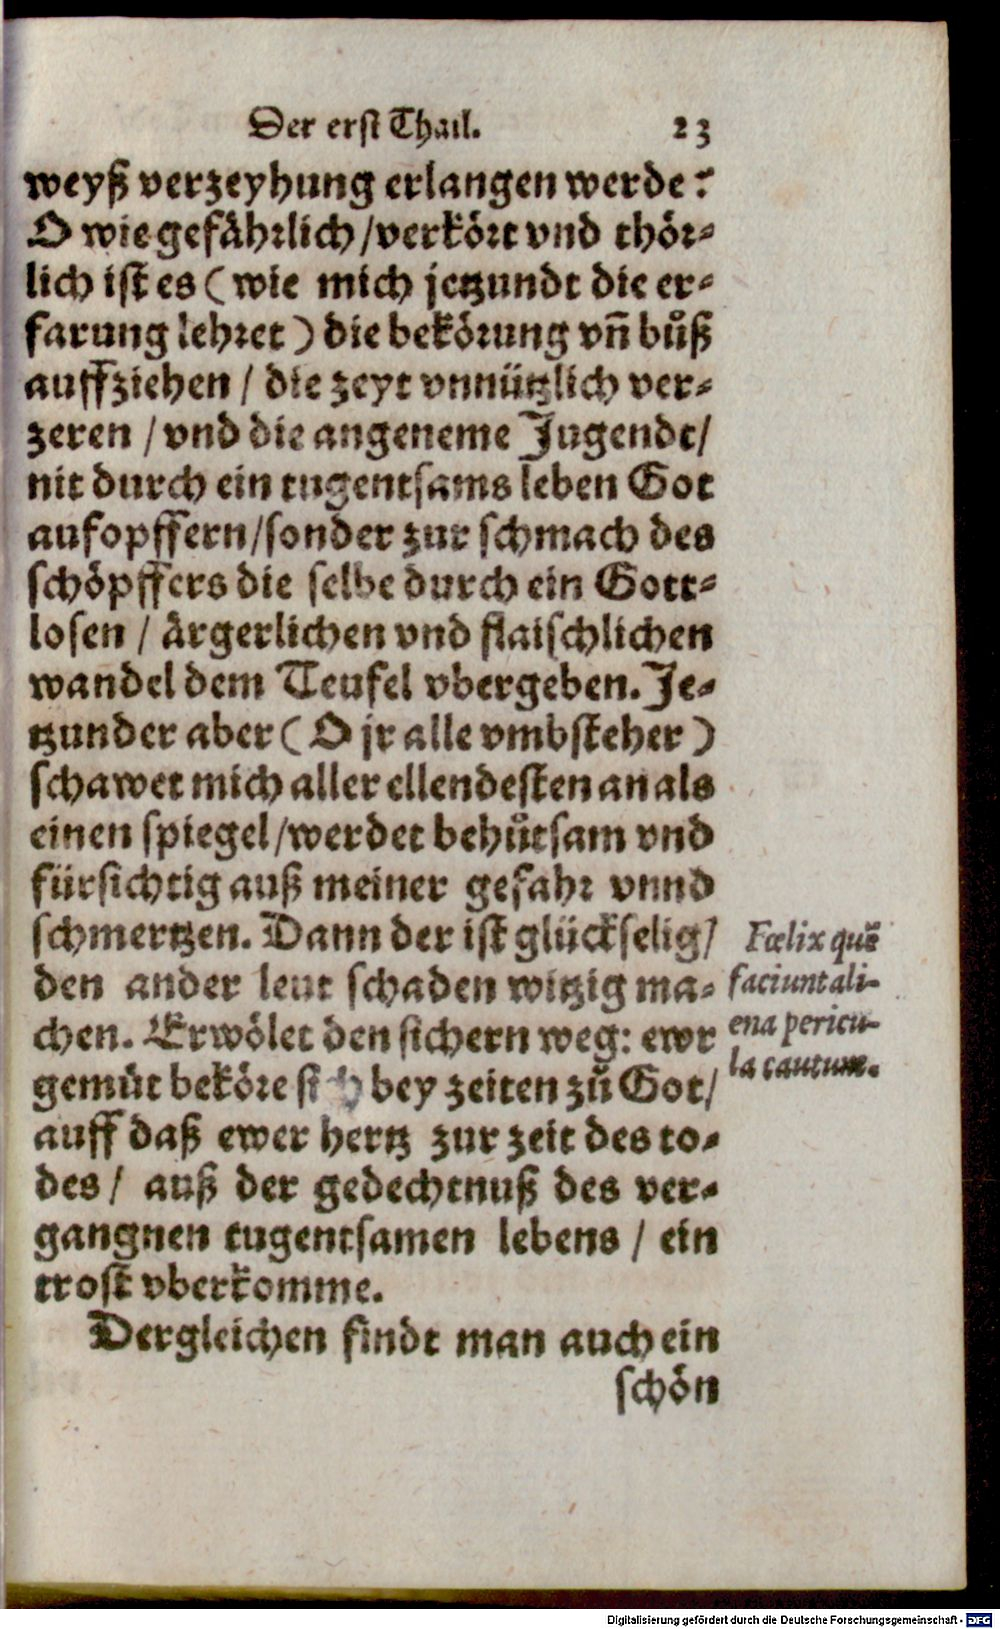 Der erst Thail. 23
weyß verzeyhung erlangen werde?
O wie gefåhrlich / verkört vnd thör-
lich ist es ( wie mich jetzundt die er-
farung lehret ) die bekörung vn̄ bůß
auffziehen / die zeyt vnnützlich ver-
zeren / vnd die angeneme Jugendt /
nit durch ein tugentsams leben Got
aufopffern / sonder zur schmach des
schöpffers die selbe durch ein Gott-
losen / årgerlichen vnd flaischlichen
wandel dem Teufel vbergeben. Je-
tzunder aber ( O jr alle vmbsteher )
schawet mich aller ellendesten an als
einen spiegel / werdet behůtsam vnd
fürsichtig auß meiner gefahr vnnd
schmertzen. Dann der ist glückselig /
den ander leut schaden witzig ma-
chen. Erwölet den sichern weg: ewr
gemůt beköre sich bey zeiten zů Got /
auff daß ewer hertz zur zeit des to-
des / auß der gedechtnuß des ver-
gangnen tugentsamen lebens / ein
trost vberkomme.
Dergleichen findt man auch ein
schön
Fœlix quē
faciunt ali-
ena pericu-
la cautum.
Digitalisierung gefördert durch die Deutsche Forschungsgemeinschaft - DFG